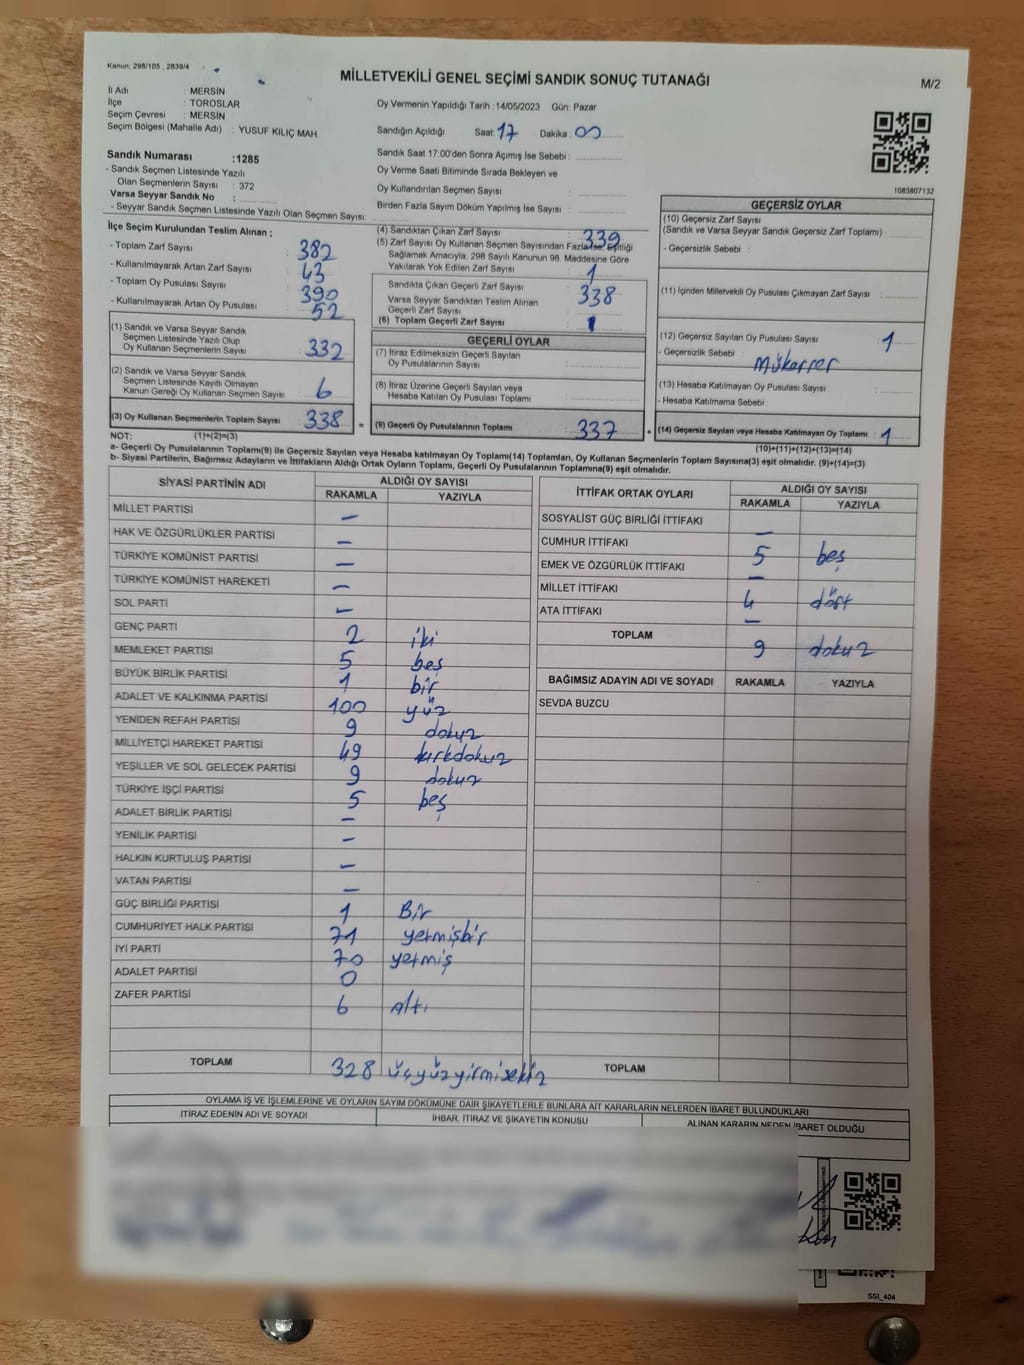 Kanun: 298/105 , 2839/4
MİLLETVEKİLİ GENEL SEÇİMİ SANDIK SONUÇ TUTANAĞI
M/2
İl Adı : MERSİN
İlçe : TOROSLAR
Seçim Çevresi : MERSİN
Seçim Bölgesi (Mahalle Adı) : YUSUF KILIÇ MAH.
Oy Vermenin Yapıldığı Tarih : 14/05/2023 Gün: Pazar
Sandığın Açıldığı Saat: 17 Dakika : 00
Sandık Numarası :1285
- Sandık Seçmen Listesinde Yazılı
Olan Seçmenlerin Sayısı : 372
Varsa Seyyar Sandık No :
- Seyyar Sandık Seçmen Listesinde Yazılı Olan Seçmen Sayısı:
Sandık Saat 17.00'den Sonra Açılmış İse Sebebi :
Oy Verme Saati Bitiminde Sırada Bekleyen ve
Oy Kullandırılan Seçmen Sayısı :
Birden Fazla Sayım Döküm Yapılmış İse Sayısı :
1083807132
İlçe Seçim Kurulundan Teslim Alınan ;
- Toplam Zarf Sayısı : 382
- Kullanılmayarak Artan Zarf Sayısı : 43
- Toplam Oy Pusulası Sayısı : 390
- Kullanılmayarak Artan Oy Pusulası : 52
(1) Sandık ve Varsa Seyyar Sandık
Seçmen Listesinde Yazılı Olup
Oy Kullanan Seçmenlerin Sayısı : 332
(2) Sandık ve Varsa Seyyar Sandık
Seçmen Listesinde Kayıtlı Olmayan
Kanun Gereği Oy Kullanan Seçmen Sayısı : 6
(3) Oy Kullanan Seçmenlerin Toplam Sayısı : 338 =
(4) Sandıktan Çıkan Zarf Sayısı : 339
(5) Zarf Sayısı Oy Kullanan Seçmen Sayısından Fazla ise, Eşitliği
Sağlamak Amacıyla, 298 Sayılı Kanunun 98. Maddesine Göre
Yakılarak Yok Edilen Zarf Sayısı : 1
Sandıkta Çıkan Geçerli Zarf Sayısı : 338
Varsa Seyyar Sandıktan Teslim Alınan
Geçerli Zarf Sayısı :
(6) Toplam Geçerli Zarf Sayısı :
GEÇERLİ OYLAR
(7) İtiraz Edilmeksizin Geçerli Sayılan
Oy Pusulalarının Sayısı :
(8) İtiraz Üzerine Geçerli Sayılan veya
Hesaba Katılan Oy Pusulası Toplamı :
(9) Geçerli Oy Pusulalarının Toplamı : 337 +
GEÇERSİZ OYLAR
(10) Geçersiz Zarf Sayısı
(Sandık ve Varsa Seyyar Sandık Geçersiz Zarf Toplamı) :
- Geçersizlik Sebebi :
(11) İçinden Milletvekili Oy Pusulası Çıkmayan Zarf Sayısı :
(12) Geçersiz Sayılan Oy Pusulası Sayısı : 1
- Geçersizlik Sebebi : Mükerrer
(13) Hesaba Katılmayan Oy Pusulası Sayısı :
- Hesaba Katılmama Sebebi :
(14) Geçersiz Sayılan veya Hesaba Katılmayan Oy Toplamı : 1
NOT: (1)+(2)=(3) (10)+(11)+(12)+(13)=(14)
a- Geçerli Oy Pusulalarının Toplamı(9) ile Geçersiz Sayılan veya Hesaba Katılmayan Oy Toplamı(14) Toplamları, Oy Kullanan Seçmenlerin Toplam Sayısına(3) eşit olmalıdır. (9)+(14)=(3)
b- Siyasi Partilerin, Bağımsız Adayların ve İttifakların Aldığı Ortak Oyların Toplamı, Geçerli Oy Pusulalarının Toplamına(9) eşit olmalıdır.
SİYASİ PARTİNİN ADI ALDIĞI OY SAYISI
RAKAMLA YAZIYLA
MİLLET PARTİSİ –
HAK VE ÖZGÜRLÜKLER PARTİSİ –
TÜRKİYE KOMÜNİST PARTİSİ –
TÜRKİYE KOMÜNİST HAREKETİ –
SOL PARTİ –
GENÇ PARTİ 2 iki
MEMLEKET PARTİSİ 5 beş
BÜYÜK BİRLİK PARTİSİ 1 bir
ADALET VE KALKINMA PARTİSİ 100 yüz
YENİDEN REFAH PARTİSİ 9 dokuz
MİLLİYETÇİ HAREKET PARTİSİ 49 kırkdokuz
YEŞİLLER VE SOL GELECEK PARTİSİ 9 dokuz
TÜRKİYE İŞÇİ PARTİSİ 5 beş
ADALET BİRLİK PARTİSİ –
YENİLİK PARTİSİ –
HALKIN KURTULUŞ PARTİSİ –
VATAN PARTİSİ –
GÜÇ BİRLİĞİ PARTİSİ 1 Bir
CUMHURİYET HALK PARTİSİ 71 yetmişbir
İYİ PARTİ 70 yetmiş
ADALET PARTİSİ 0
ZAFER PARTİSİ 6 Altı
TOPLAM 328 üçyüzyirmisekiz
İTTİFAK ORTAK OYLARI ALDIĞI OY SAYISI
RAKAMLA YAZIYLA
SOSYALİST GÜÇ BİRLİĞİ İTTİFAKI –
CUMHUR İTTİFAKI 5 beş
EMEK VE ÖZGÜRLÜK İTTİFAKI –
MİLLET İTTİFAKI 4 dört
ATA İTTİFAKI –
TOPLAM 9 dokuz
BAĞIMSIZ ADAYIN ADI VE SOYADI RAKAMLA YAZIYLA
SEVDA BUZCU
TOPLAM
OYLAMA İŞ VE İŞLEMLERİNE VE OYLARIN SAYIM DÖKÜMÜNE DAİR ŞİKAYETLERLE BUNLARA AİT KARARLARIN NELERDEN İBARET BULUNDUKLARI
İTİRAZ EDENİN ADI VE SOYADI İHBAR, İTİRAZ VE ŞİKAYETİN KONUSU ALINAN KARARIN NEDEN İBARET OLDUĞU
SSİ_404